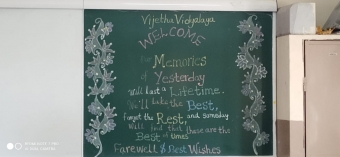 Vijetha Vidyalaya
WELCOME
For Memories
of Yesterday
Will Last a Lifetime.
We'll take the Best,
Forget the Rest, and someday
Will find that these are the
Best of times
Farewell & Best Wishes